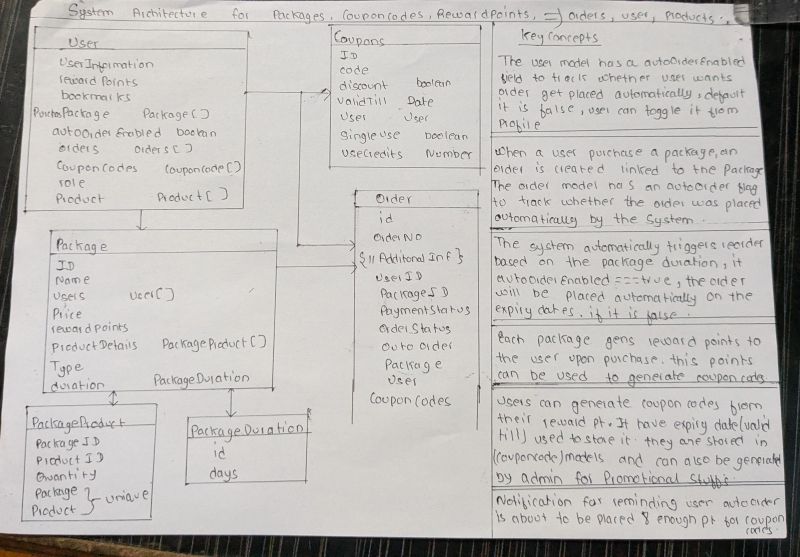 System Architecture for Packages, Couponcodes, Reward points, => orders, user, products.
User
User Information
reward Points
bookmarks
Package Package[]
autoOrder Enabled boolean
orders orders[]
Coupon Codes Couponcode[]
role
Product Product[]
Coupons
ID
code
discount boolean
validTill Date
User User
Single Use boolean
UseCredits Number
Order
id
Order No
{ // Additonal Inf }
User ID
Package ID
Payment Status
Order Status
Outo order
Package
User
Coupon Codes
Package
ID
Name
Users User[]
Price
reward points
Product Details PackageProduct[]
Type
duration PackageDuration
PackageProduct
Package ID
Product ID
Quantity
Package
Product } unique
PackageDuration
id
days
Key Concepts
The user model has a autoOrderEnabled
field to track whether user wants
order get placed automatically, default
it is false, user can toggle it from
Profile
When a user purchase a package, an
order is created linked to the Package
The order model has an autoOrder flag
to track whether the order was placed
automatically by the System.
The system automatically triggers reorder
based on the package duration, if
autoOrderEnabled === true, the order
will be placed automatically on the
expiry dates. if it is false.
Each package gens reward points to
the user upon purchase. this points
can be used to generate coupon codes
Users can generate coupon codes from
their reward pt. It have expiry date (valid
till) used to store it. they are stored in
(couponcode) models and can also be generated
by admin for Promotional Stuffs.
Notification for reminding user autoorder
is about to be placed & enough pt for coupon
codes.